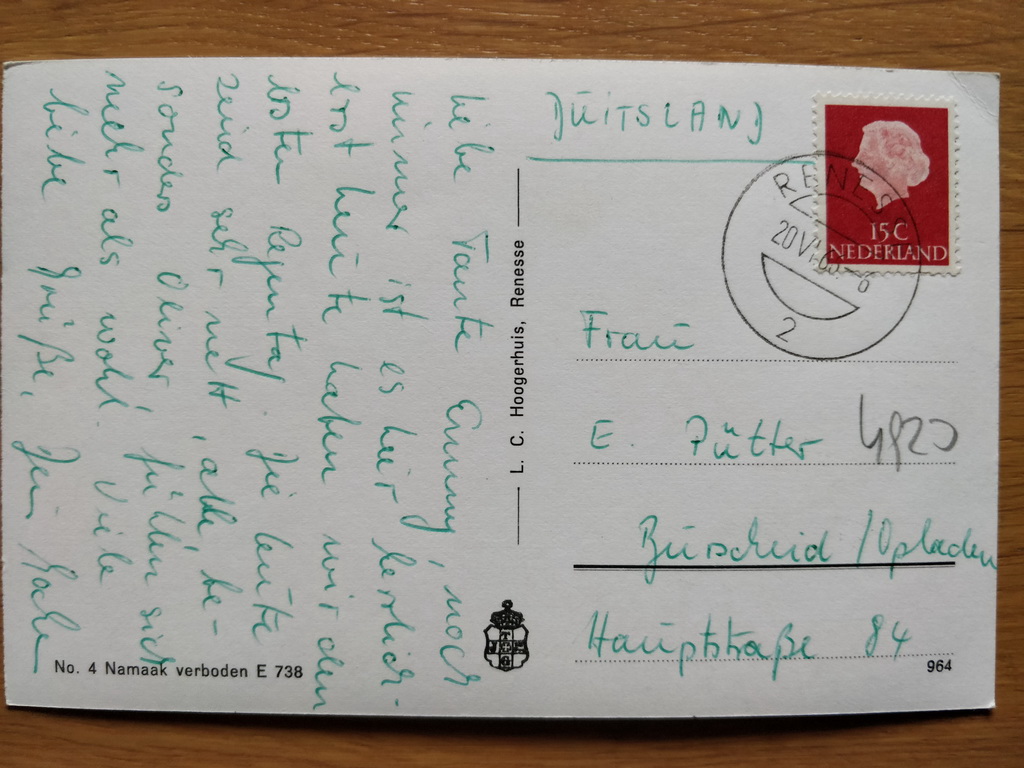 Liebe Tante Emmy, noch
immer ist es hier herrlich –
erst heute haben wir den
ersten Regentag. Die Leute
sind sehr nett, alle, be-
sonders Oliver, fühlen sich
mehr als wohl. Viele
liebe Grüße,
L. C. Hoogerhuis, Renesse
No. 4 Namaak verboden E 738
DUITSLAND
15 C
NEDERLAND
RENESSE
20 VI
2
Frau
E. Pütter
Burscheid / Opladen
Hauptstraße 84
964